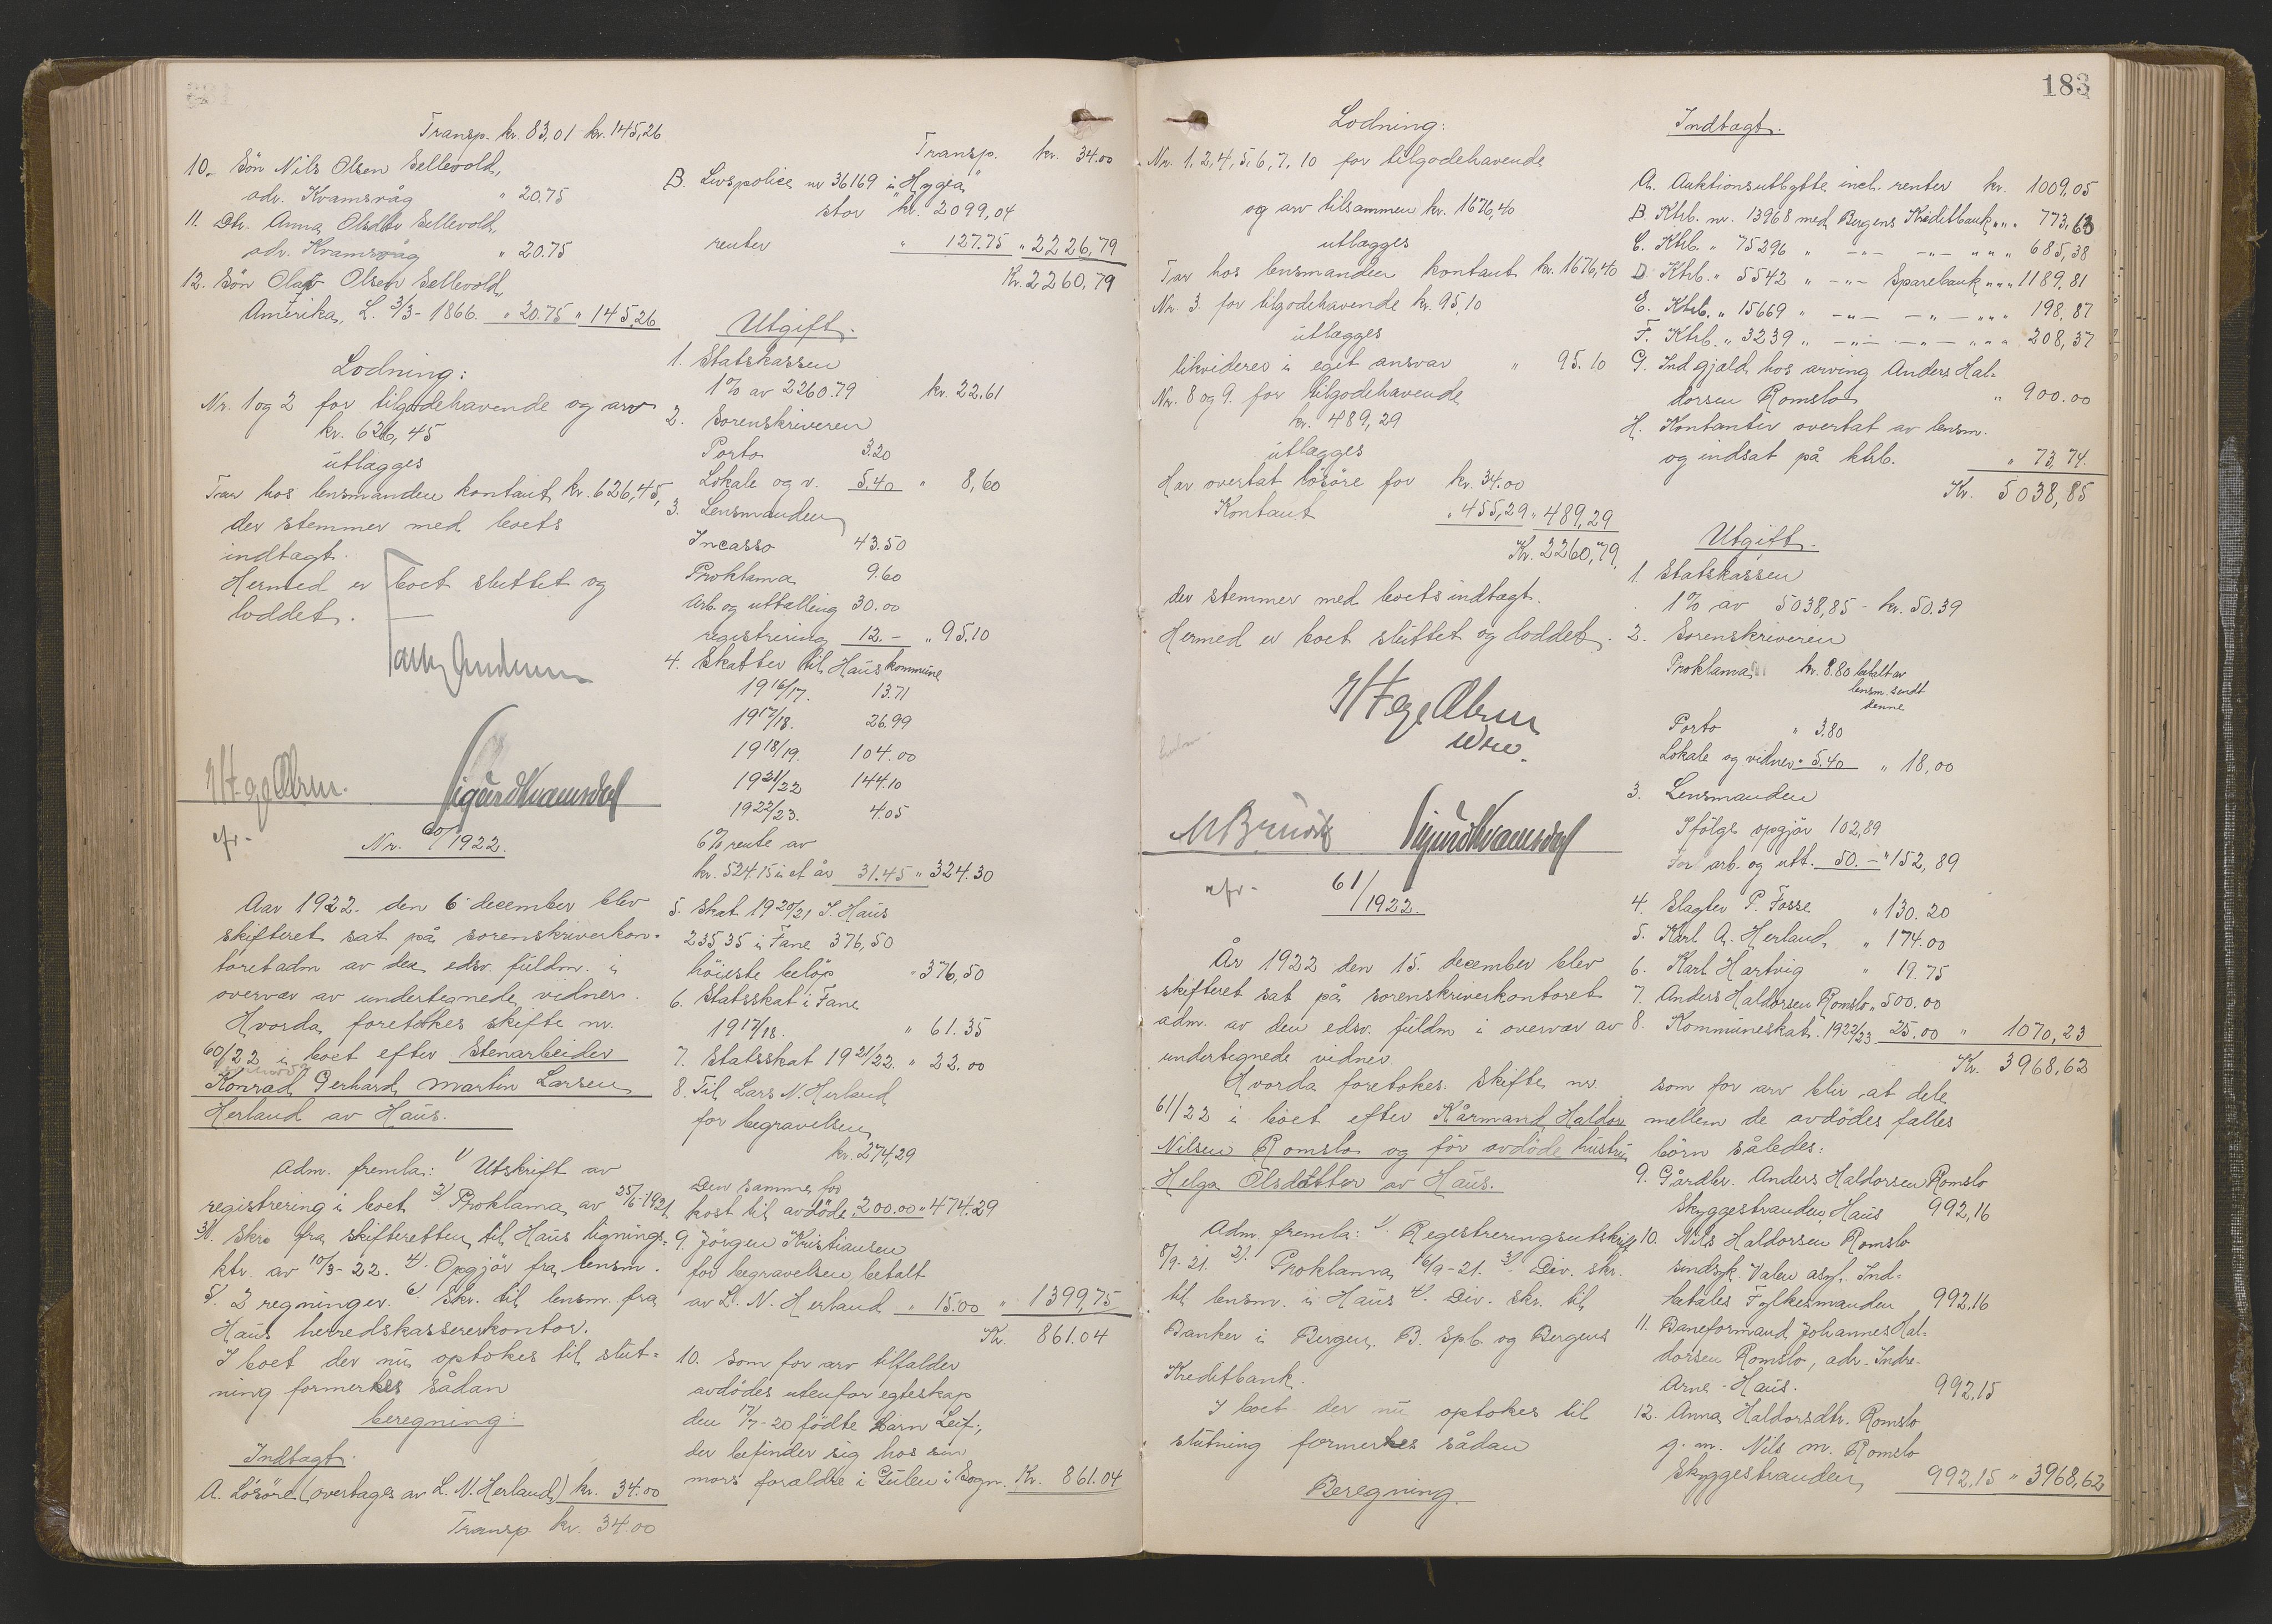 Transp. kr. 83,01 kr. 145,26
10. Sön Nils Olsen Sellevold,
adr. Kvamsvåg " 20.75
11. Dtr. Anna Olsdtr Sellevold,
adr. Kvamsvåg " 20.75
12. Sön Olav Olsen Sellevold,
Amerika, L. 3/3-1866. " 20.75 " 145,26
Lodning:
Nr. 1 og 2 for tilgodehavende og arv
kr. 626,45
utlægges
Tar hos lensmanden kontant kr. 626,45,
der stemmer med boets
indtægt.
Hermed er boet sluttet og
loddet.
Sigurd Kvamsdal
efr-
Nr. 60/1922.
Aar 1922. den 6 december blev
skifteret sat på sorenskriverkon-
toret adm av den edsv. fuldm. i
overvær av undertegnede vidner.
Hvorda foretokes skifte nr.
60/22 i boet efter Stenarbeider
Konrad Gerhard Martin Larsen
Herland av Haus.
Adm. fremla: 1) Utskrift av
registrering i boet 2) Proklama av 25/6-1921
3). Skr. fra skifteretten til Haus lignings-
ktr. av 10/3-22. 4). Opgjör fra lensm.
5). 2 regninger. 6) Skr. til lensm. fra
Haus herredskassererkontor.
I boet der nu optokes til slut-
ning formerkes sådan
beregning:
Indtægt.
A. Lösöre (overtages av L. N. Herland) kr. 34.00
Transp. kr. 34.00
Transp. kr. 34.00
B. Livspolice nr 36169 i "Hygea"
stor kr. 2099,04
renter " 127.75 " 2226,79
Kr. 2260,79
Utgift.
1. Statskassen
1% av 2260.79 kr. 22,61
2. Sorenskriveren
Porto 3.20
Lokale og v. 5.40 " 8,60
3. Lensmanden
Incasso 43.50
Proklama 9.60
Arb. og uttælling 30.00
registrering 12.- " 95,10
4. Skatter til Haus kommune
1916/17. 13.71
1917/18. 26.99
1918/19. 104.00
1921/22 144.10
1922/23. 4.05
6% rente av
kr. 524.15 i et år 31.45 " 324.30
5. Skat 1920/21 I. Haus
235,35 i Fane 376,50
höieste belöp " 376,50
6. Statsskat i Fane
1917/18. " 61.35
7. Statsskat 1921/22. " 22.00
8. Til Lars N. Herland
for begravelsen
kr. 274,29
Den samme for
kost til avdöde 200.00 " 474.29
9. Jörgen Kristiansen
for begravelsen, betalt
av L. N. Herland " 15.00 " 1399,75
Kr. 861.04
10. Som for arv tilfalder
avdödes utenfor egteskap
den 17/7-20 födte barn Leif,
der befinder sig hos sin
mors forældre i Gulen i Sogn. Kr. 861.04
183
Lodning:
Nr. 1, 2, 4, 5, 6, 7, 10 for tilgodehavende
og arv tilsammen kr. 1676,40
utlægges
Tar hos lensmanden kontant kr. 1676,40
Nr. 3 for tilgodehavende kr. 95,10
utlægges
likvideres i eget ansvar " 95.10
Nr. 8 og 9. for tilgodehavende
kr. 489,29
utlægges
Har overtat lösöre for kr. 34.00
Kontant " 455,29 " 489,29
Kr. 2260,79,
der stemmer med boets indtægt.
Hermed er boet sluttet og loddet.
Sigurd Kvamsdal
efr-
61/1922.
År 1922 den 15. december blev
skifteret sat på sorenskriverkontoret
adm. av den edsv. fuldm i overvær av
undertegnede vidner.
Hvorda foretokes. Skifte nr.
61/22 i boet efter Kårmand Haldor
Nilsen Romslo og för avdöde hustru
Helga Olsdatter av Haus.
Adm. fremla: 1) Regestreringsutskrift
8/9-21. 2). Proklama 16/9-21. 3). Div. skr.
til lensm. i Haus 4). Div. skr. til
Banker i Bergen, B. Spb. og Bergens
Kreditbank.
I boet der nu optokes til
slutning formerkes sådan
Beregning.
Indtægt.
A. Auktionsutbytte incl. renter kr. 1009,05
B. Ktrb. nr. 13968 med Bergens Kreditbank " " " 773,63
C. Ktrb. " 75296 " -"- -"- " " " 685,38
D. Ktrb. " 5542 " -"- Sparebank " " " 1189,81
E. Ktrb. " 15669 " -"- -"- " " " 198,87
F. Ktrb. " 3239 " -"- -"- " " " 208,37
G. Indgjæld hos arving Anders Hal-
dorsen Romslo " 900.00
H. Kontanter overtat av lensm.
og indsat på ktrb. " 73,74.
Kr. 5038,85
Utgift.
1. Statskassen
1% av 5038,85 - kr. 50.39
2. Sorenskriveren
Proklama kr. 8.80 betalt av
lensm. sendt
denne
Porto " 3.80
Lokale og vidner " 5.40 " 18,00
3. Lensmanden
Ifölge opgjör 102,89
For arb. og utt. 50.- " 152,89
4. Slagter P. Fosse " 130.20
5. Karl A. Herland " 174.00
6. Karl Hartvig " 19.75
7. Anders Haldorsen Romslo " 500.00
8. Kommuneskat. 1922/23 25.00 " 1070,23
Kr. 3968,62
som for arv blir at dele
mellem de avdödes fælles
börn således:
9. Gårdbr. Anders Haldorsen Romslo
Skyggestranden, Haus 992,16
10. Nils Haldorsen Romslo
sindsyk. Valen asyl. Ind-
betales Fylkesmanden 992,16
11. Baneformand Johannes Hal-
dorsen Romslo, adr. Indre-
Arne - Haus. 992,15
12. Anna Haldorsdtr. Romslo
g. m. Nils M. Romslo
Skyggestranden 992,15 " 3968,62